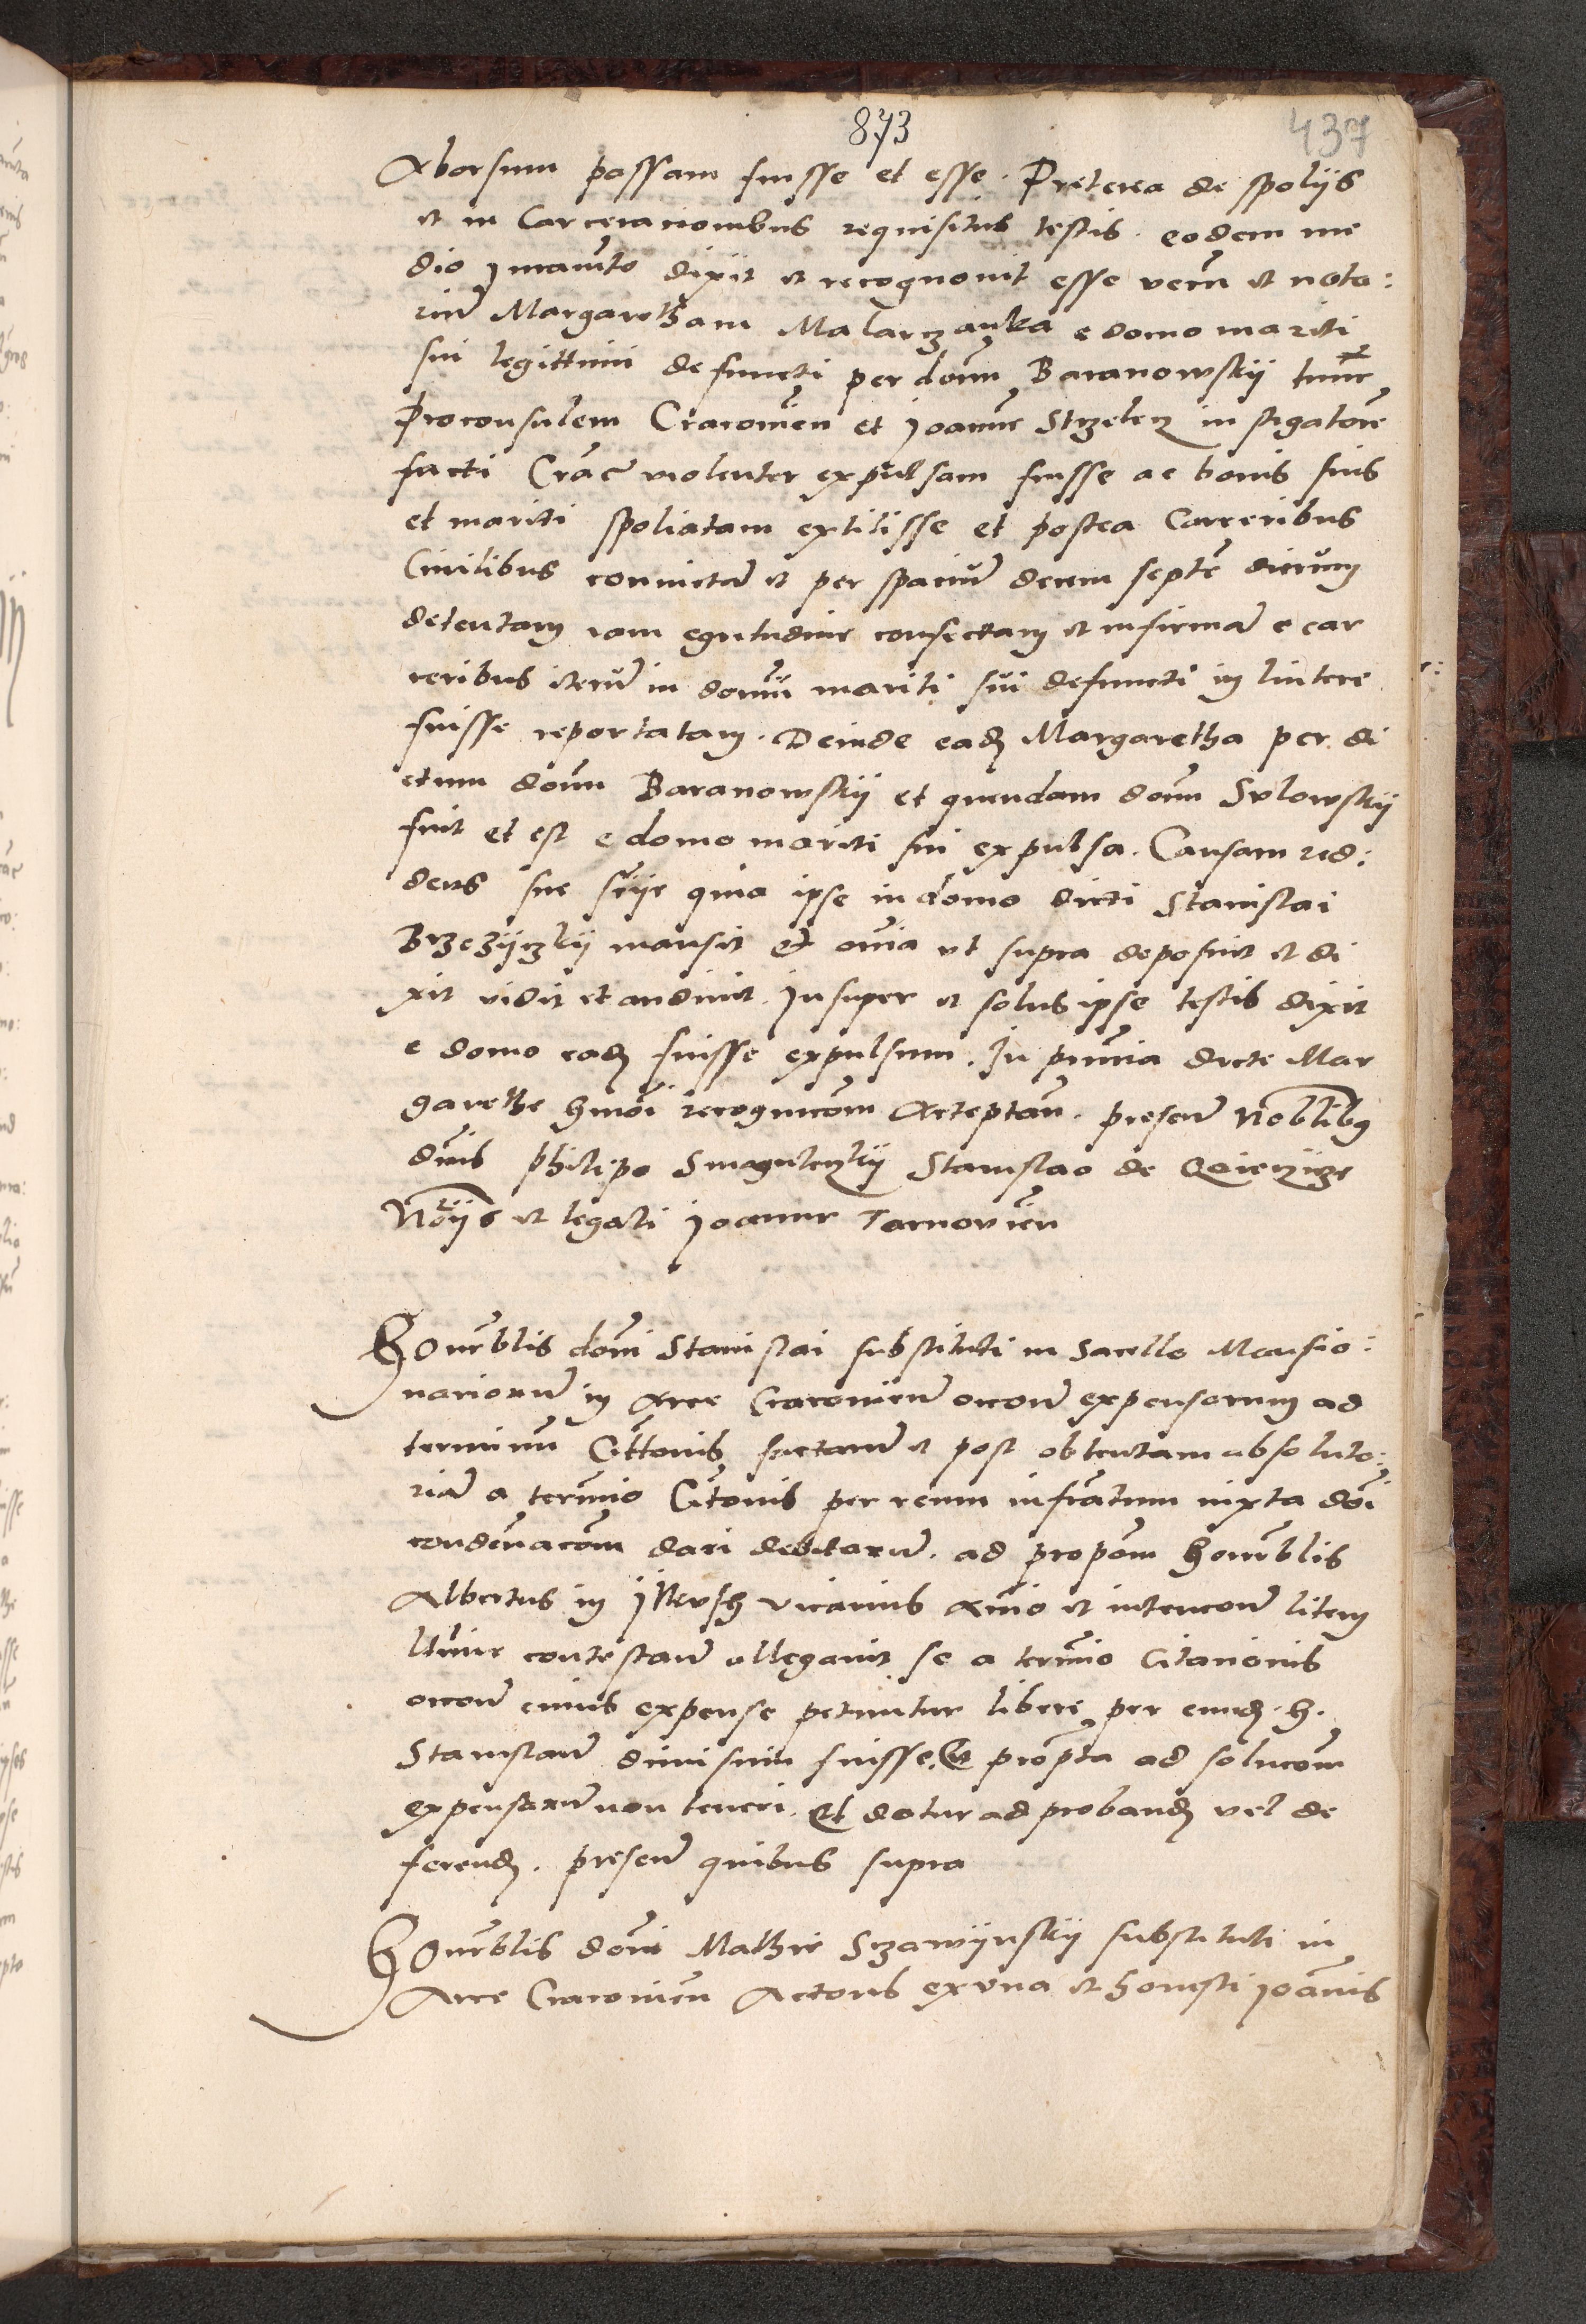 873
437
Aborsum passam fuisse et esse. Preterea de spolÿs
et in Carceracionibus requisitus testis. eodem me
dio Juramento dixit et recognovit esse verum et noto:
rium Margaretham Malarzanka e domo mariti
sui legittimi defuncti per domn Baranowskÿ tunc
Proconsulem Cracovien et Joanne Strzelecz instigatore
facti Crac violenter expulsam fuisse ac bonis suis
et mariti spoliatam extitisse et postea Carceribus
Civilibus convictam et per spacium decem septem dierum
detentam iam egritudine confectam et infirmam e car
ceribus iterum in domum mariti sui defuncti in lintere
fuisse reportatam. Deinde eadem Margaretha per di
ctum domn Baranowskÿ et quendam domn Solowskÿ
fuit et est e domo mariti sui expulsa. Causam red:
dens sue scije quia ipse in domo dicti Stanislai
Brzezÿczkÿ mansit et omnia ut supra deposuit et di
xit vidit et audivit. Insuper et solus ipse testis dixit
e domo eadem fuisse expulsum. In pruncia dicte Mar
garethe hmoi recognicom Acceptan. presen Noblibus
dnis Philipo Smogulenzkÿ Stanislao de
Notÿs et legali Joanne Tarnovien
Honrblis domi Stanislai substituti in Sacello Mansio:
nariorum in Arce Cracovien occone expensarum ad
terminum Citonis factarum et post obtentam absoluto:
riam a termino Citonis per reum infratum iuxta doi
condemnacom dari debitarum. ad propom honrblis
Albertus in Ilkusch vicarius Animo et intencone litem
llime contestan allegavit se a termino Citacionis
occone cuius expense petuntur libere per eundem. h.
Stanislaum dimissum fuisse. Et propta ad solucom
expensarum non teneri. Et datur ad probandum vel de
ferendum. presen quibus supra
Honrblis domi Mathie Szawÿnskÿ substituti in
Arce Cracovien Actoris ex una et honesti Joannis